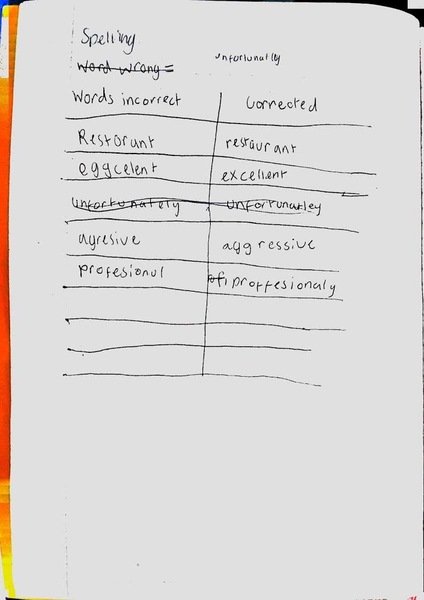 Spelling
word wrong =
unfortunatley
Words incorrect corrected
Restorant restaurant
eggcelent excellent
unfortunately unfortunatley
agresive aggressive
profesional proffesionaly